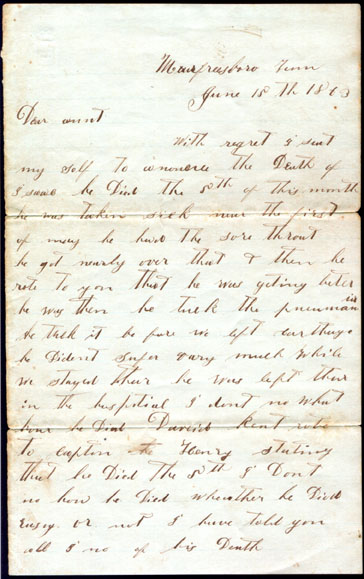 Murfrasboro Tenn
June 18 th 1863
Dear aunt
With regret I seat
my self to anounce the Death of
he Died the 8th of this month
he was taken sick near the first
of may he had the sore throat
he got nearly over that & then he
rote to you that he was geting beter
he was then he tuck the pneumania
he tuck it be fore we left carthage
he Dident sufer vary much while
we stayed thair he was left thair
in the hospitial I dont no what
he Died David Kent rote
to captin Henry stating
that he Died the 8th I Dont
no how he Died wheather he Died
Easy or not I have told you
all I no of his Death